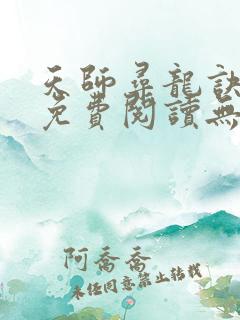 天師尋龍訣
免費閱讀無
阿喬喬
未經同意禁止轉載